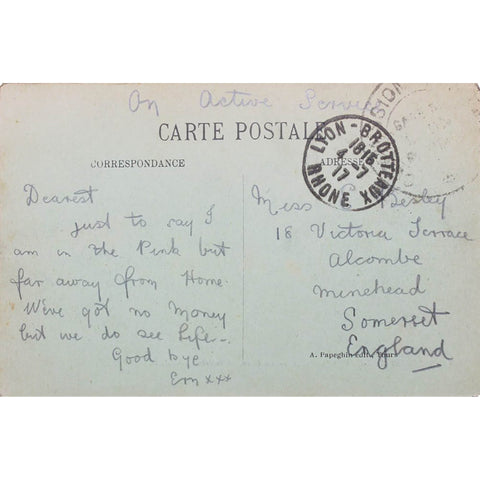 On Active Service
CARTE POSTALE
CORRESPONDANCE
ADRESSE
LYON-BROTTEAUX
1815
4-7
17
RHONE
Dearest
just to say I
am in the Pink but
far away from Home.
We've got no Money
but we do see Life -
Good bye
Ern xxx
Miss Besley
18 Victoria Terrace
Alcombe
Minehead
Somerset
England
A. Papeghin édit., Tours